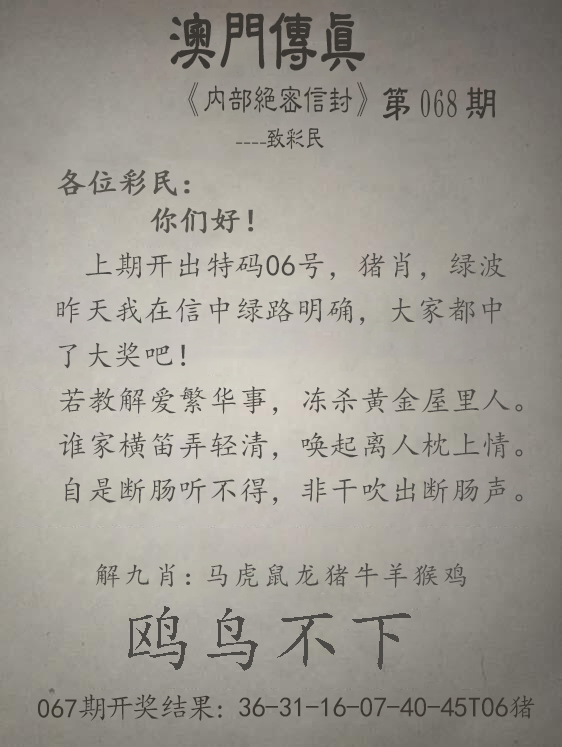 澳門傳眞
《内部絕密信封》第068期
----致彩民
各位彩民：
你们好！
上期开出特码06号，猪肖，绿波
昨天我在信中绿路明确，大家都中
了大奖吧！
若教解爱繁华事，冻杀黄金屋里人。
谁家横笛弄轻清，唤起离人枕上情。
自是断肠听不得，非干吹出断肠声。
解九肖：马虎鼠龙猪牛羊猴鸡
鸥鸟不下
067期开奖结果：36-31-16-07-40-45T06猪